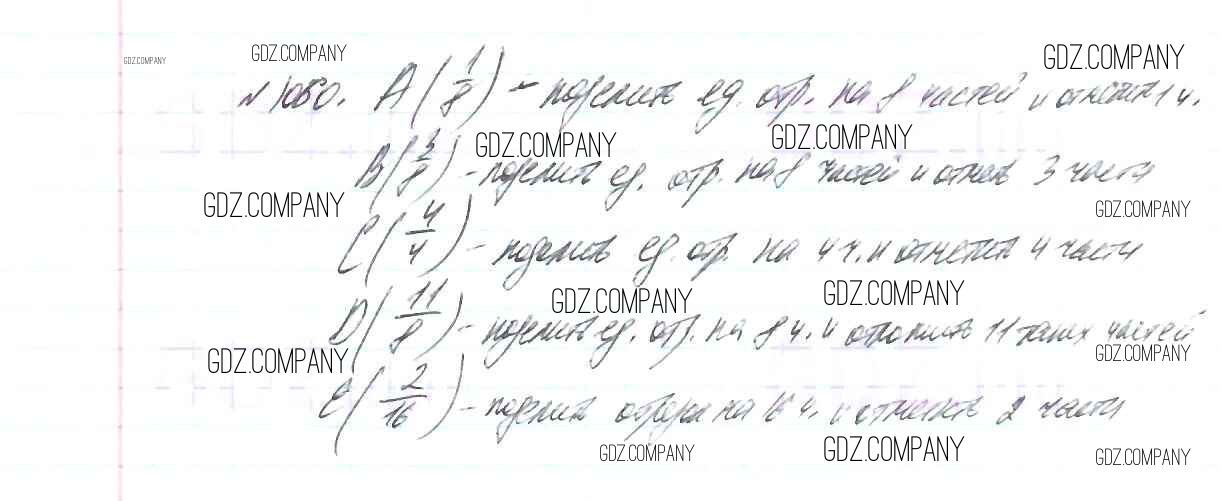 GDZ.COMPANY GDZ.COMPANY GDZ.COMPANY
№1050. A(1/8) – поделить ед. отр. на 8 частей и отметить 1 ч.
GDZ.COMPANY GDZ.COMPANY
B(3/8) – поделить ед. отр. на 8 частей и отмет 3 части
GDZ.COMPANY GDZ.COMPANY
C(4/4) – поделить ед. отр. на 4 ч. и отметить 4 части
GDZ.COMPANY GDZ.COMPANY
D(11/8) – поделить ед. отр. на 8 ч. и отложить 11 таких частей
GDZ.COMPANY GDZ.COMPANY
E(2/16) – поделить отрезок на 16 ч. и отметить 2 части
GDZ.COMPANY GDZ.COMPANY GDZ.COMPANY